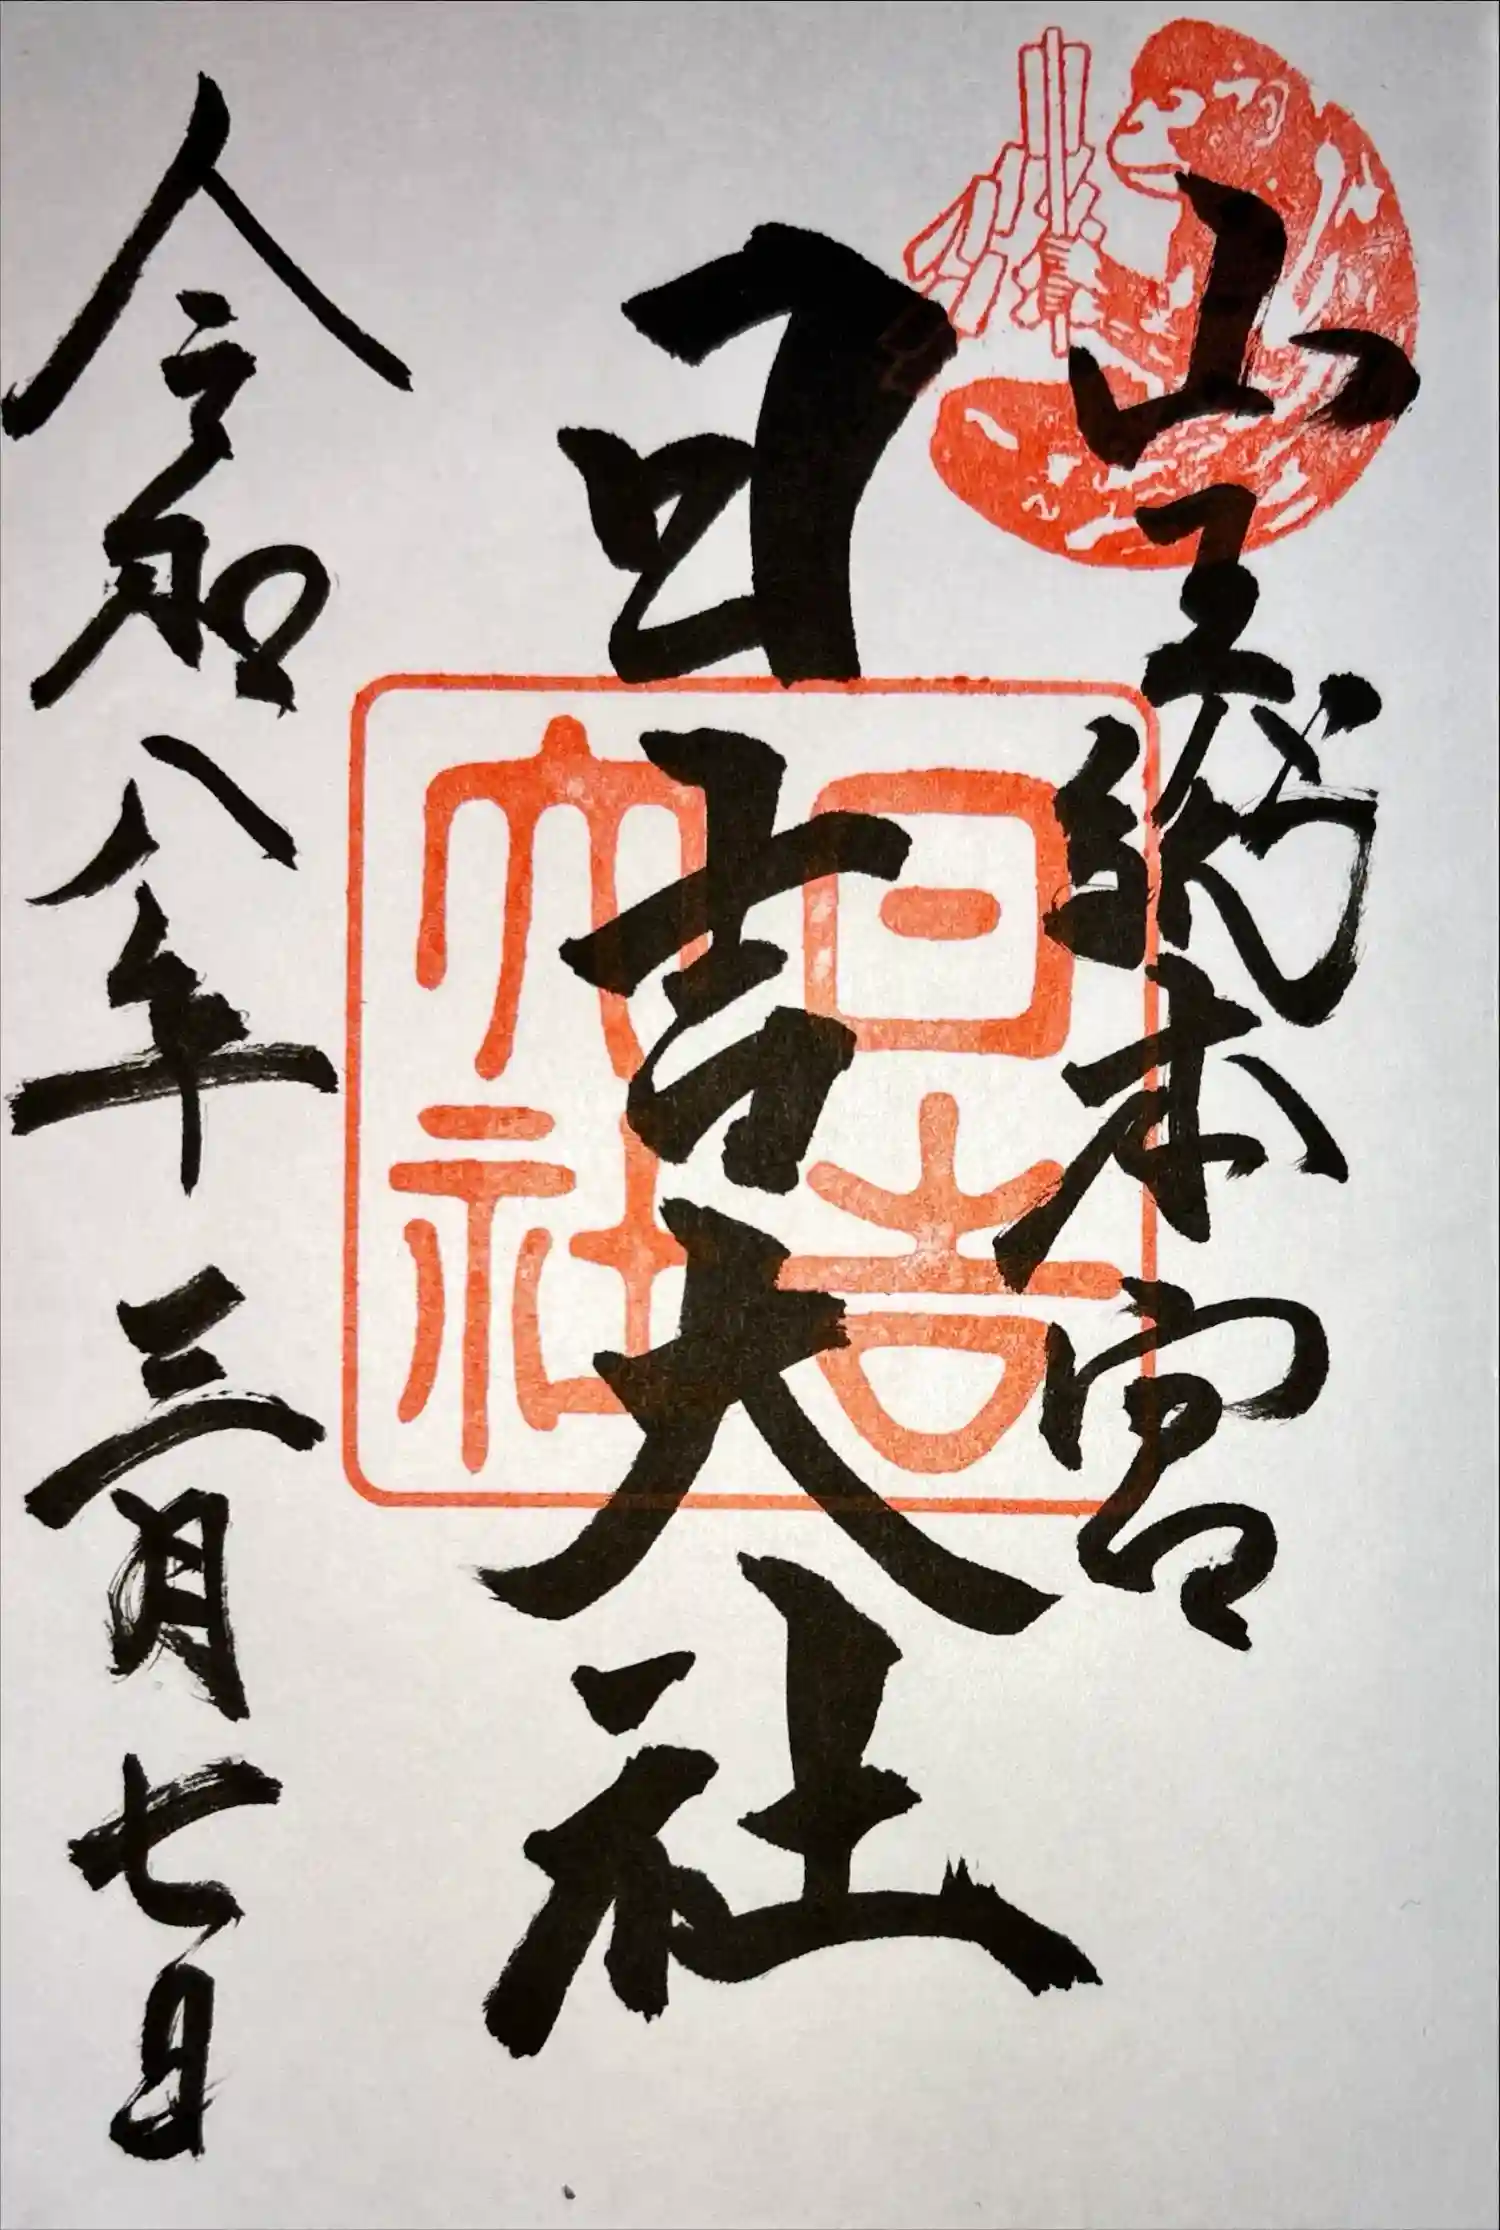 山王総本宮
日吉大社
令和八年三月七日
日吉
大社